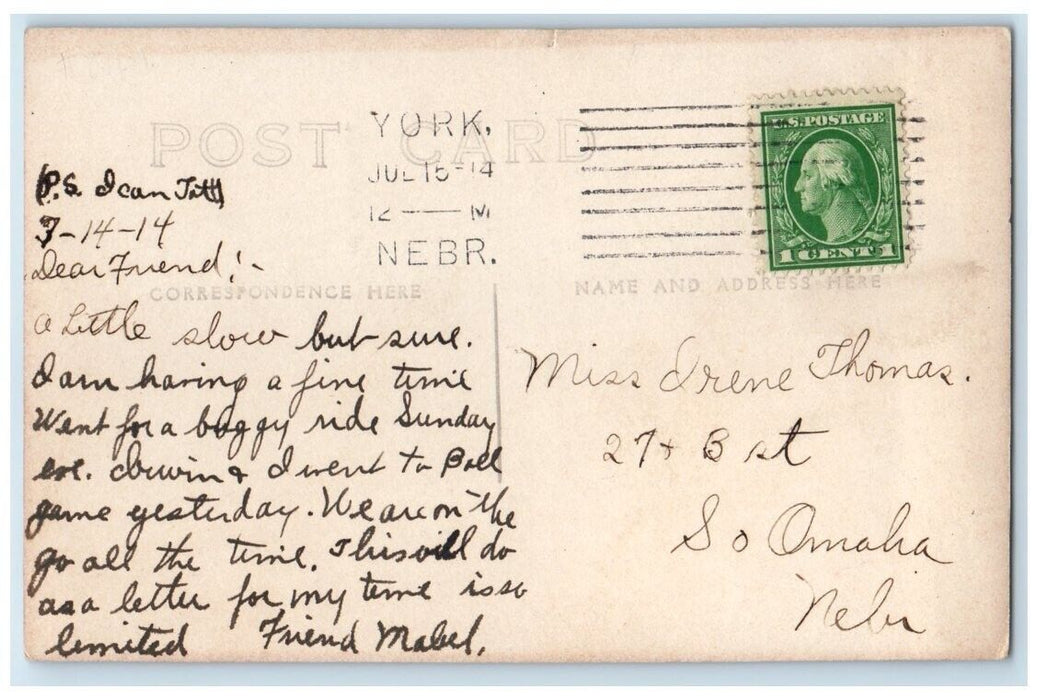 POST CARD
YORK,
JUL 15-14
12 — M
NEBR.
U.S. POSTAGE
1 CENT 1
P.S. I can
7-14-14
Dear Friend! -
CORRESPONDENCE HERE
NAME AND ADDRESS HERE
A little slow but sure.
I am having a fine time
Went for a buggy ride Sunday
eve. Irwin & I went to Ball
game yesterday. We are on the
go all the time. This will do
as a letter for my time is so
limited Friend Mabel.
Miss Irene Thomas.
27 + B st
So Omaha
Nebr